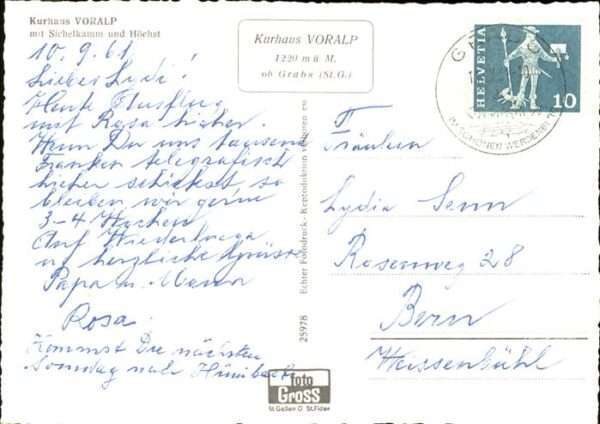 Kurhaus VORALP
mit Sichelkamm und Höchst
10. 9. 61
Liebes Lydi!
Heute Ausflug
mit Rosa hieher.
Wenn Du uns tausend
Franken telegrafisch
hieher schickst, so
bleiben wir gerne
3-4 Wochen
Auf Wiederluega
u herzliche Grüsse
Papa u. Mama
Rosa.
Kommst Du nächsten
Sonntag nach Hünibach
Kurhaus VORALP
1220 m ü M.
ob Grabs (St.G.)
HELVETIA
10
IM SCHÖNEN WERDENBERG
Fräulein
Lydia Senn
Rosenweg 28
Bern
Weissenbühl
25978 Echter Fotodruck - Reproduktion verboten
foto
Gross
St.Gallen O St.Fiden